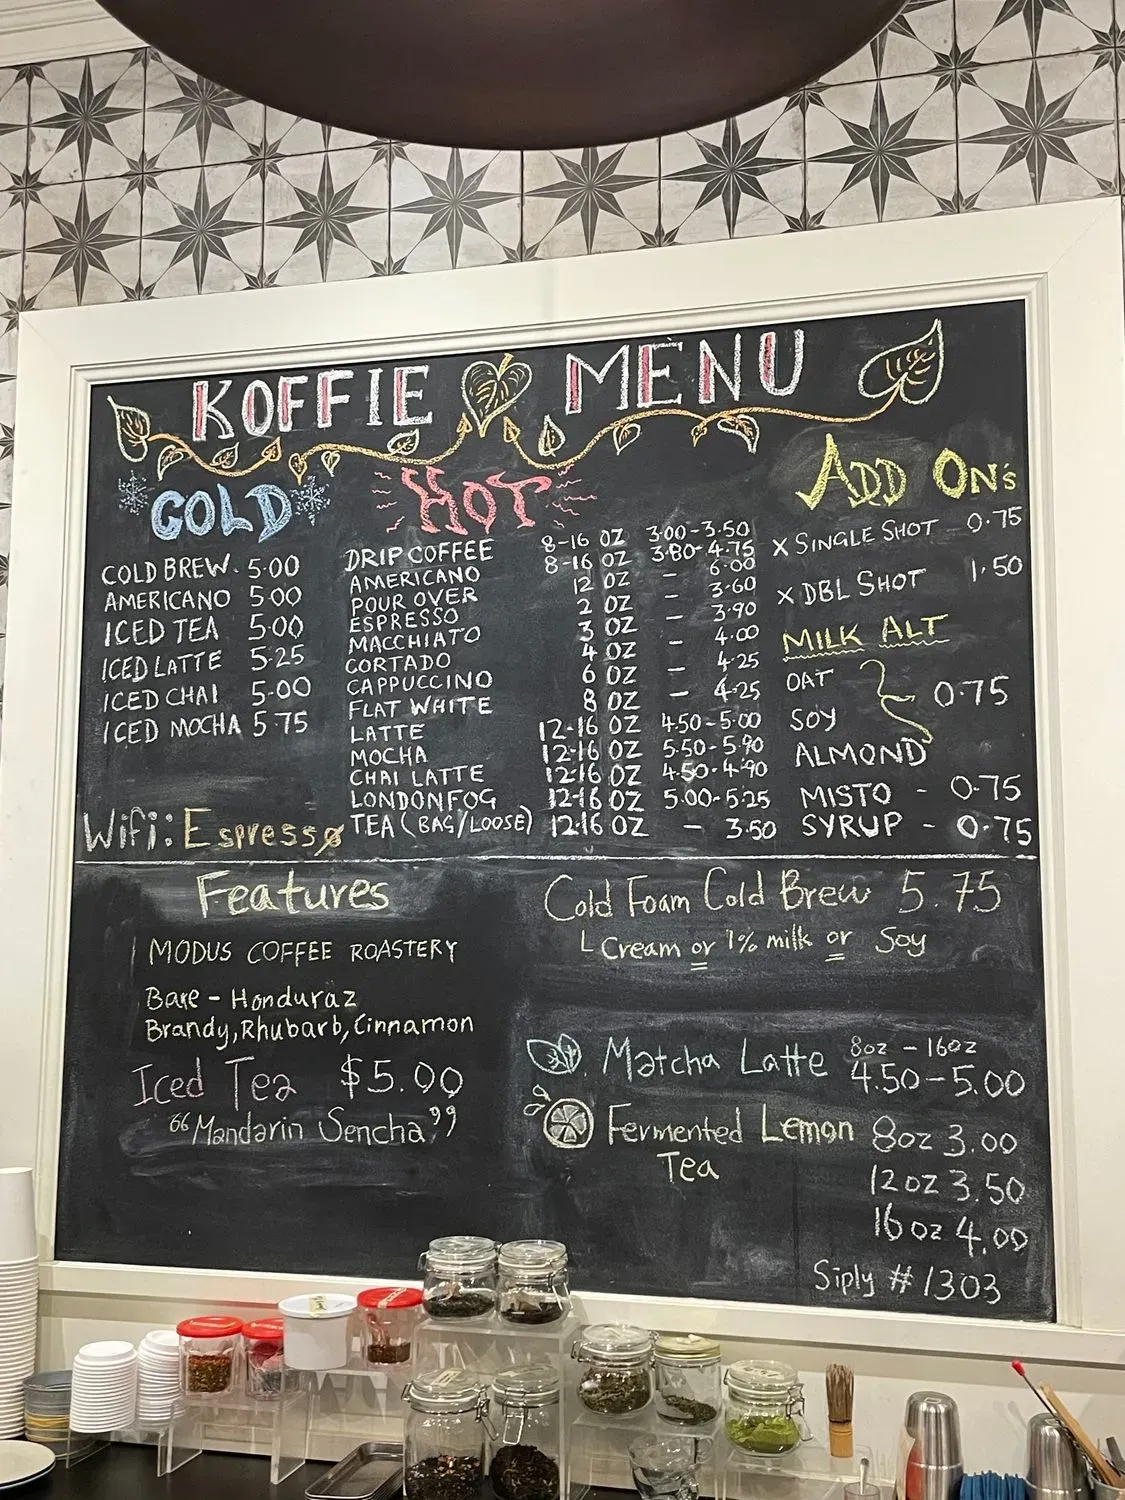 KOFFIE MENU
COLD
COLD BREW 5.00
AMERICANO 5.00
ICED TEA 5.00
ICED LATTE 5.25
ICED CHAI 5.00
ICED MOCHA 5.75
Wifi: Espresso
HOT
DRIP COFFEE 8-16 OZ 3.00-3.50
AMERICANO 8-16 OZ 3.80-4.75
POUR OVER 12 OZ - 6.00
ESPRESSO 2 OZ - 3.60
MACCHIATO 3 OZ - 3.90
CORTADO 4 OZ - 4.00
CAPPUCCINO 6 OZ - 4.25
FLAT WHITE 8 OZ - 4.25
LATTE 12-16 OZ 4.50-5.00
MOCHA 12-16 OZ 5.50-5.90
CHAI LATTE 12-16 OZ 4.50-4.90
LONDON FOG 12-16 OZ 5.00-5.25
TEA (BAG/LOOSE) 12-16 OZ - 3.50
ADD ON's
x SINGLE SHOT 0.75
x DBL SHOT 1.50
MILK ALT
OAT
SOY 0.75
ALMOND
MISTO - 0.75
SYRUP - 0.75
Features
MODUS COFFEE ROASTERY
Bare - Honduraz
Brandy, Rhubarb, Cinnamon
Iced Tea $5.00
"Mandarin Sencha"
Cold Foam Cold Brew 5.75
Cream or 1% milk or Soy
Matcha Latte 8oz - 16oz
4.50-5.00
Fermented Lemon 8oz 3.00
Tea
12oz 3.50
16oz 4.00
Siply #1303